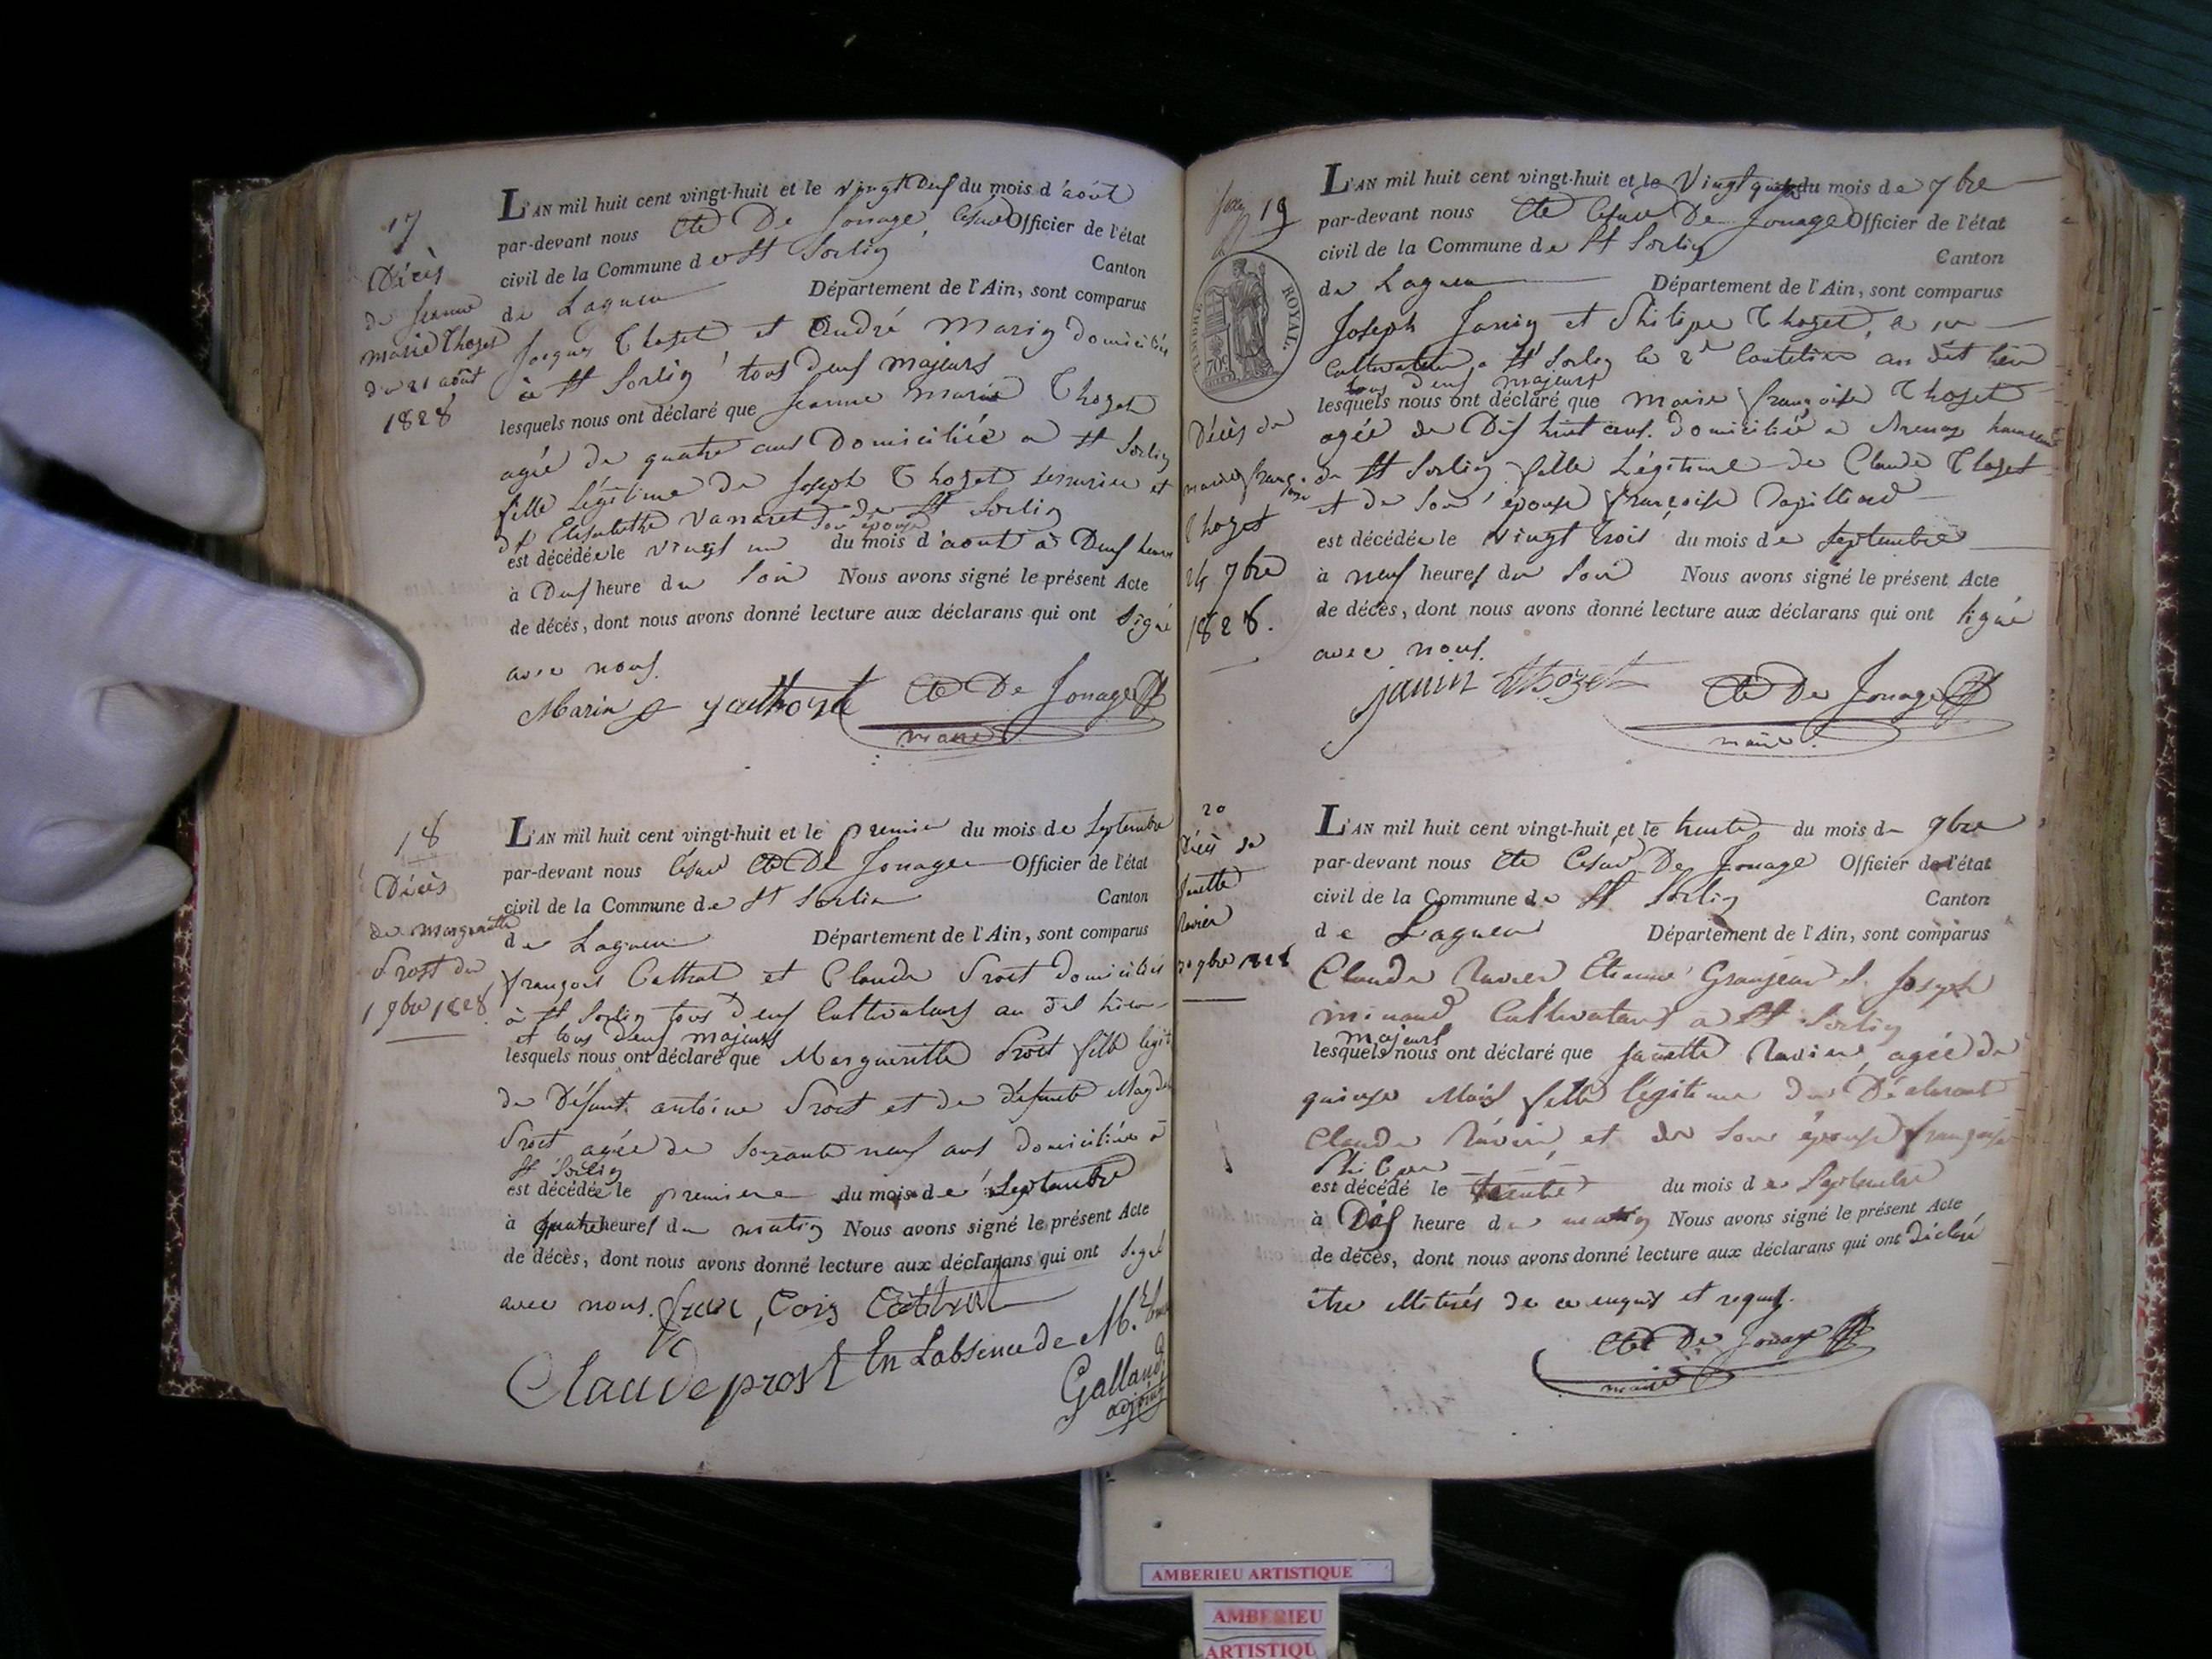 17
Décès
de Jeanne
marie Thozet
du 21 août
1828
L'AN mil huit cent vingt-huit et le vingt deux du mois d'août
par-devant nous Cte De Jonage, César Officier de l'état
civil de la Commune de St Sorlin Canton
de Lagneu Département de l'Ain, sont comparus
Jacques Thozet et André Marin domiciliés
à St Sorlin tous deux majeurs
lesquels nous ont déclaré que Jeanne marie Thozet
agée de quatre ans Domiciliée a St Sorlin
fille Légitime de Joseph Thozet serrurier et
d'Elisabethe Vanaret son épouse de St Sorlin
est décédée le vingt un du mois d'aout à Deux heure
à Deux heure du soir Nous avons signé le présent Acte
de décès, dont nous avons donné lecture aux déclarans qui ont signé
avec nous.
Marin Cte De Jonage
maire
18
Décès
de Margueritte
Prost du
1 7bre 1828
L'AN mil huit cent vingt-huit et le premier du mois de Septembre
par-devant nous César Cte De Jonage Officier de l'état
civil de la Commune de St Sorlin Canton
de Lagneu Département de l'Ain, sont comparus
françois Cattral et Claude Prost domiciliés
à St Sorlin tous deux Cultivateurs au dit lieu
et tous deux majeurs
lesquels nous ont déclaré que Margueritte Prost fille legit
de Défunt antoine Prost et de défunte Magde
Prost agée de soixante neuf ans domiciliée à
St Sorlin
est décédée le premiere du mois de Septembre
à quatre heures du matin Nous avons signé le présent Acte
de décès, dont nous avons donné lecture aux déclarans qui ont signé
avec nous. fran, Cois Cattral
Claude prost En Labsence de Mr.
Galland
adjoint
19
TIMBRE ROYAL.
70c
Décès de
marie franç.
oise
Thozet
24 7bre
1828.
L'AN mil huit cent vingt-huit et le Vingt quatre du mois de 7bre
par-devant nous Cte César De Jonage Officier de l'état
civil de la Commune de St Sorlin Canton
de Lagneu Département de l'Ain, sont comparus
Joseph Janin et Philipe Thozet, le 1er
Cultivateur a St Sorlin le 2d Coutelier au dit lieu
tous deux majeurs
lesquels nous ont déclaré que Marie françoise Thozet
agée de Dix huit ans. domiciliée a hameau
de St Sorlin fille Légitime de Claude Thozet
et de son épouse françoise Papilliard
est décédée le vingt trois du mois de septembre
à neuf heures du soir Nous avons signé le présent Acte
de décès, dont nous avons donné lecture aux déclarans qui ont signé
avec nous.
janin thozet Cte De Jonage
maire.
20
Décès de
Janette
Ravier
30 7bre 1828
L'AN mil huit cent vingt-huit et le trente du mois de 7bre
par-devant nous Cte César De Jonage Officier de l'état
civil de la Commune de St Sorlin Canton
de Lagneu Département de l'Ain, sont comparus
Claude Ravier Etienne Granjean et Joseph
minaud Cultivateurs a St Sorlin
majeurs
lesquels nous ont déclaré que Janette Ravier, agée de
quinze Mois fille légitime du Déclarant
Claude Ravier, et de son épouse françoise
est décédé le trente du mois de Septembre
à Dix heure du matin Nous avons signé le présent Acte
de décès, dont nous avons donné lecture aux déclarans qui ont déclaré
être illitérés de ce enquis et requis.
Cte De Jonage
maire
AMBERIEU ARTISTIQUE
AMBERIEU
ARTISTIQU